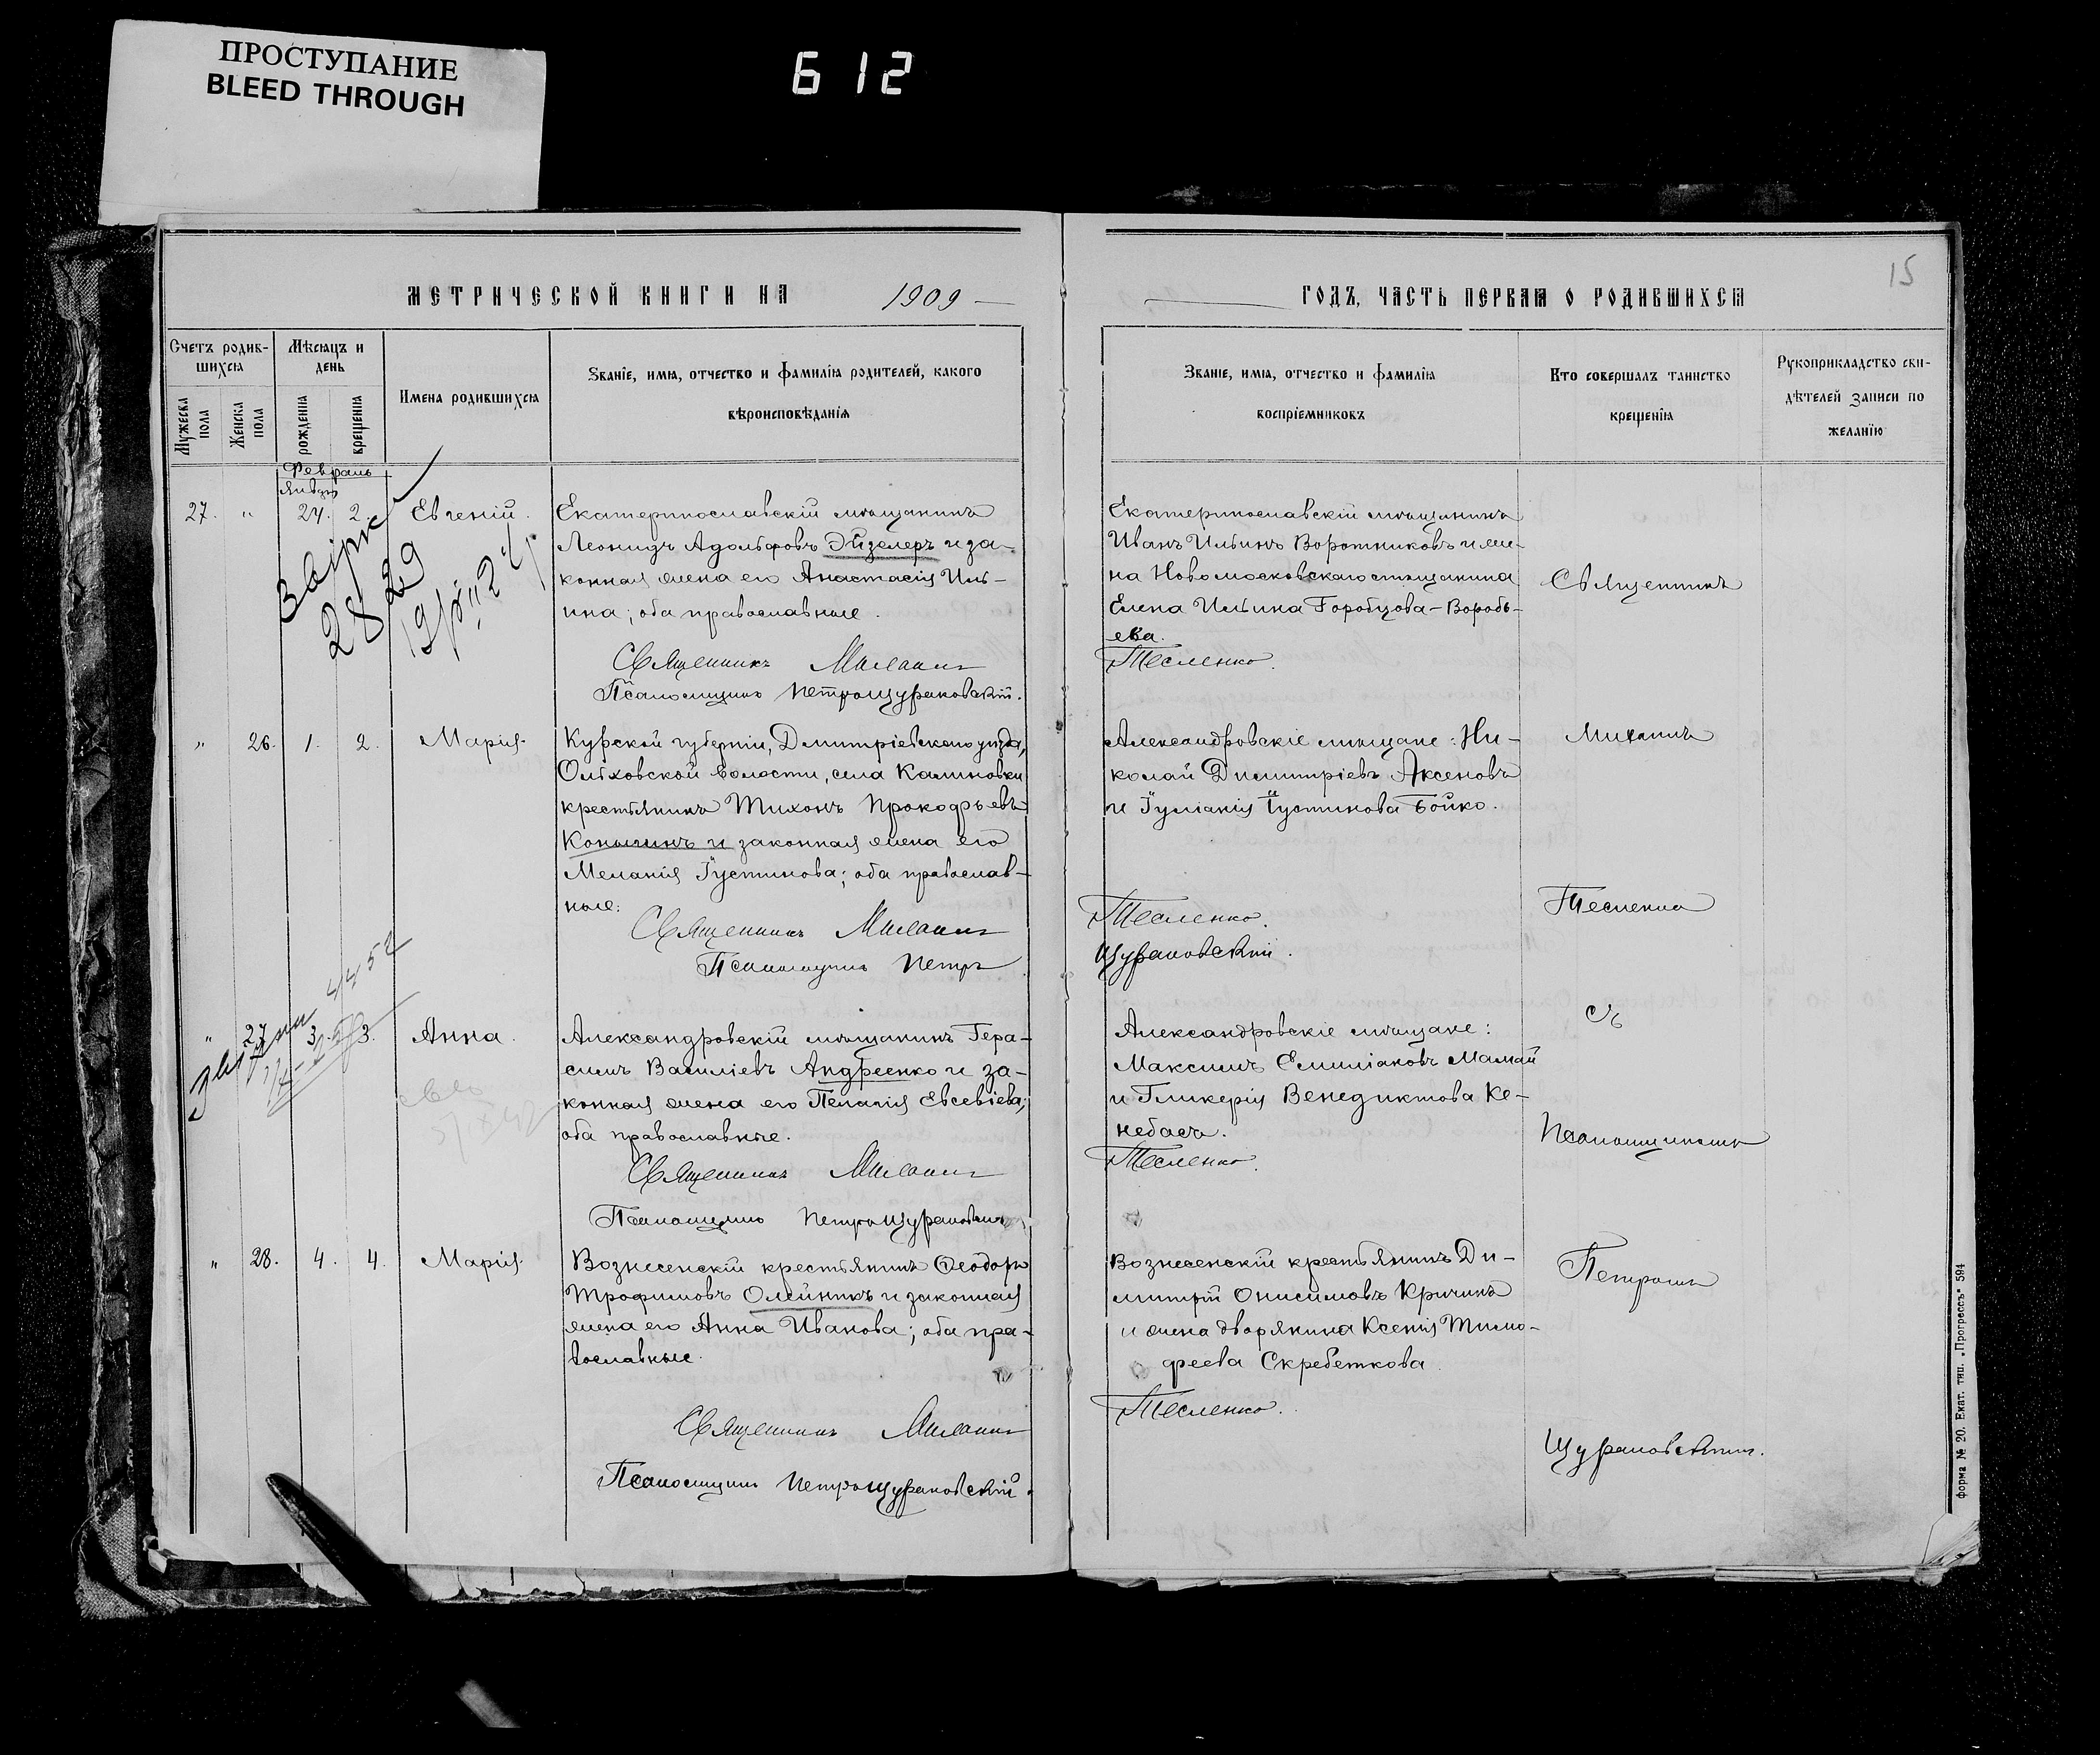 ПРОСТУПАНИЕ
BLEED THROUGH
612
15
МЕТРИЧЕСКОЙ КНИГИ НА 1909
ГОДЪ, ЧАСТЬ ПЕРВАЯ О РОДИВШИХСЯ
Счетъ родив-
шихся
Мужеска пола
Женска пола
Мѣсяцъ и
день
рожденія
крещенія
Имена родившихся
Званіе, имя, отчество и фамилія родителей, какого
вѣроисповѣданія
Званіе, имя, отчество и фамилія
воспріемниковъ
Кто совершалъ таинство
крещенія
Рукоприкладство сви-
дѣтелей записи по
желанію
Февраль
Январь
27. " 24. 2. Евгеній.
Екатеринославскій мѣщанинъ
Леонидъ Адольфовъ Эйзелеръ и за-
конная жена его Анастасія Иль-
ина; оба православные.
Священникъ Михаилъ
Псаломщикъ Петръ Щурановскій.
Екатеринославскій мѣщанинъ
Иванъ Ильинъ Воротниковъ и же-
на Новомосковскаго мѣщанина
Елена Ильина Горобцова-Воробь-
ева.
Тесленко.
Священникъ
28
" 26. 1. 2. Марія.
Курской губерніи, Дмитріевскаго уѣзда,
Ольховской волости, села Калиновки
крестьянинъ Тихонъ Прокофьевъ
Конышинъ и законная жена его
Меланія Іустинова; оба православ-
ные.
Священникъ Михаилъ
Псаломщикъ Петръ
Александровскіе мѣщане: Ни-
колай Димитріевъ Аксеновъ
и Іуліанія Іустинова Бойко.
Тесленко.
Щурановскій.
Михаилъ
Тесленко
" 27 3. 3. Анна.
Александровскій мѣщанинъ Гера-
симъ Василіевъ Андреенко и за-
конная жена его Пелагія Евсевіева;
оба православные.
Священникъ Михаилъ
Псаломщикъ Петръ Щурановскій
Александровскіе мѣщане:
Максимъ Емиліановъ Мамай
и Гликерія Венедиктова Ке-
небасъ.
Тесленко.
съ
Псаломщикомъ
" 28. 4. 4. Марія.
Вознесенскій крестьянинъ Ѳеодоръ
Трофимовъ Олейникъ и законная
жена его Анна Иванова; оба пра-
вославные.
Священникъ Михаилъ
Псаломщикъ Петръ Щурановскій.
Вознесенскій крестьянинъ Ди-
митрій Онисимовъ Кричинъ
и жена дворянина Ксенія Тимо-
феева Скребеткова
Тесленко.
Петромъ
Щурановскимъ.
Форма № 20. Екат. тип. „Прогрессъ" 594